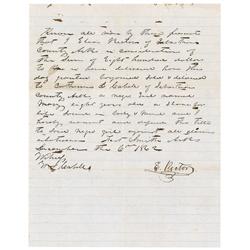 Know all men by these presents
that I Elias Rector of Sebastian
County Arks in consideration of
the sum of Eight hundred dollars
to me in hand paid before this
day granted bargained sold & delivered
to Catharine C Cabell of Sebastian
County Arks a negro girl named
Mary eight years old a slave for
life sound in body & mind and I
hereby warrant and defend the title
to said negro girl against all claims
whatsoever Fort Smith Arks
December the 6th 1862
Witness
W L Cabell
E. Rector